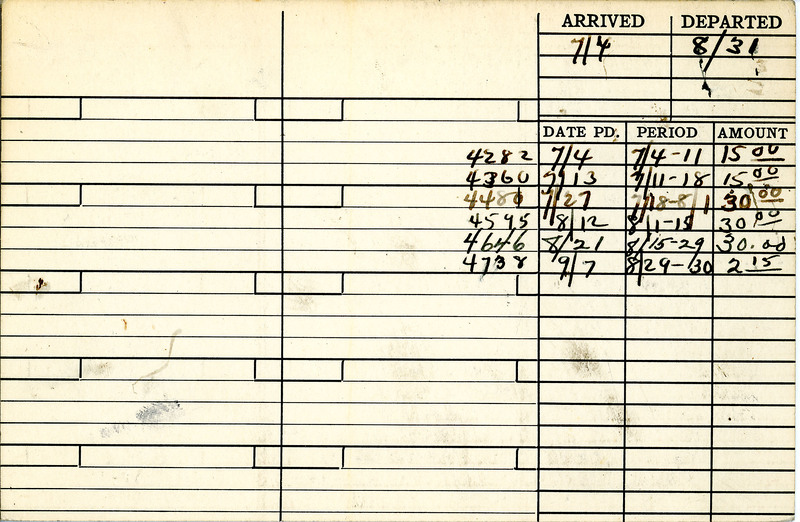 ARRIVED DEPARTED
7/4 8/31
DATE PD. PERIOD AMOUNT
4282 7/4 7/4-11 15 00
4360 7/13 7/11-18 15 00
4480 7/27 7/18-8/1 30 00
4595 8/12 8/1-15 30 00
4646 8/21 8/15-29 30.00
4738 9/7 8/29-30 2 15